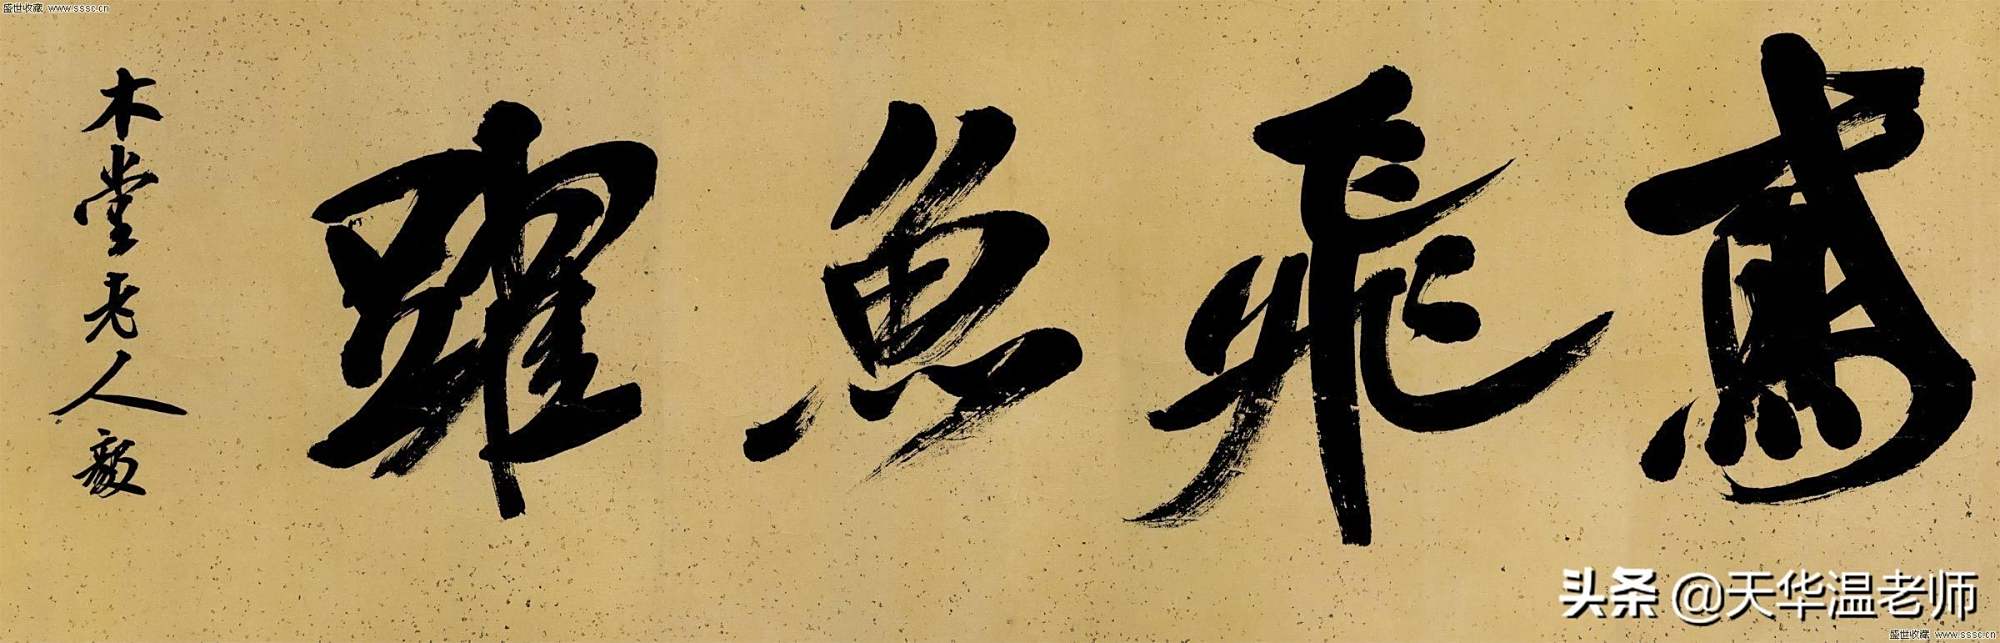 盛世收藏 www.sssc.cn
鳶飛魚躍
木堂老人毅
头条 @天华温老师
盛世收藏 www.sssc.cn